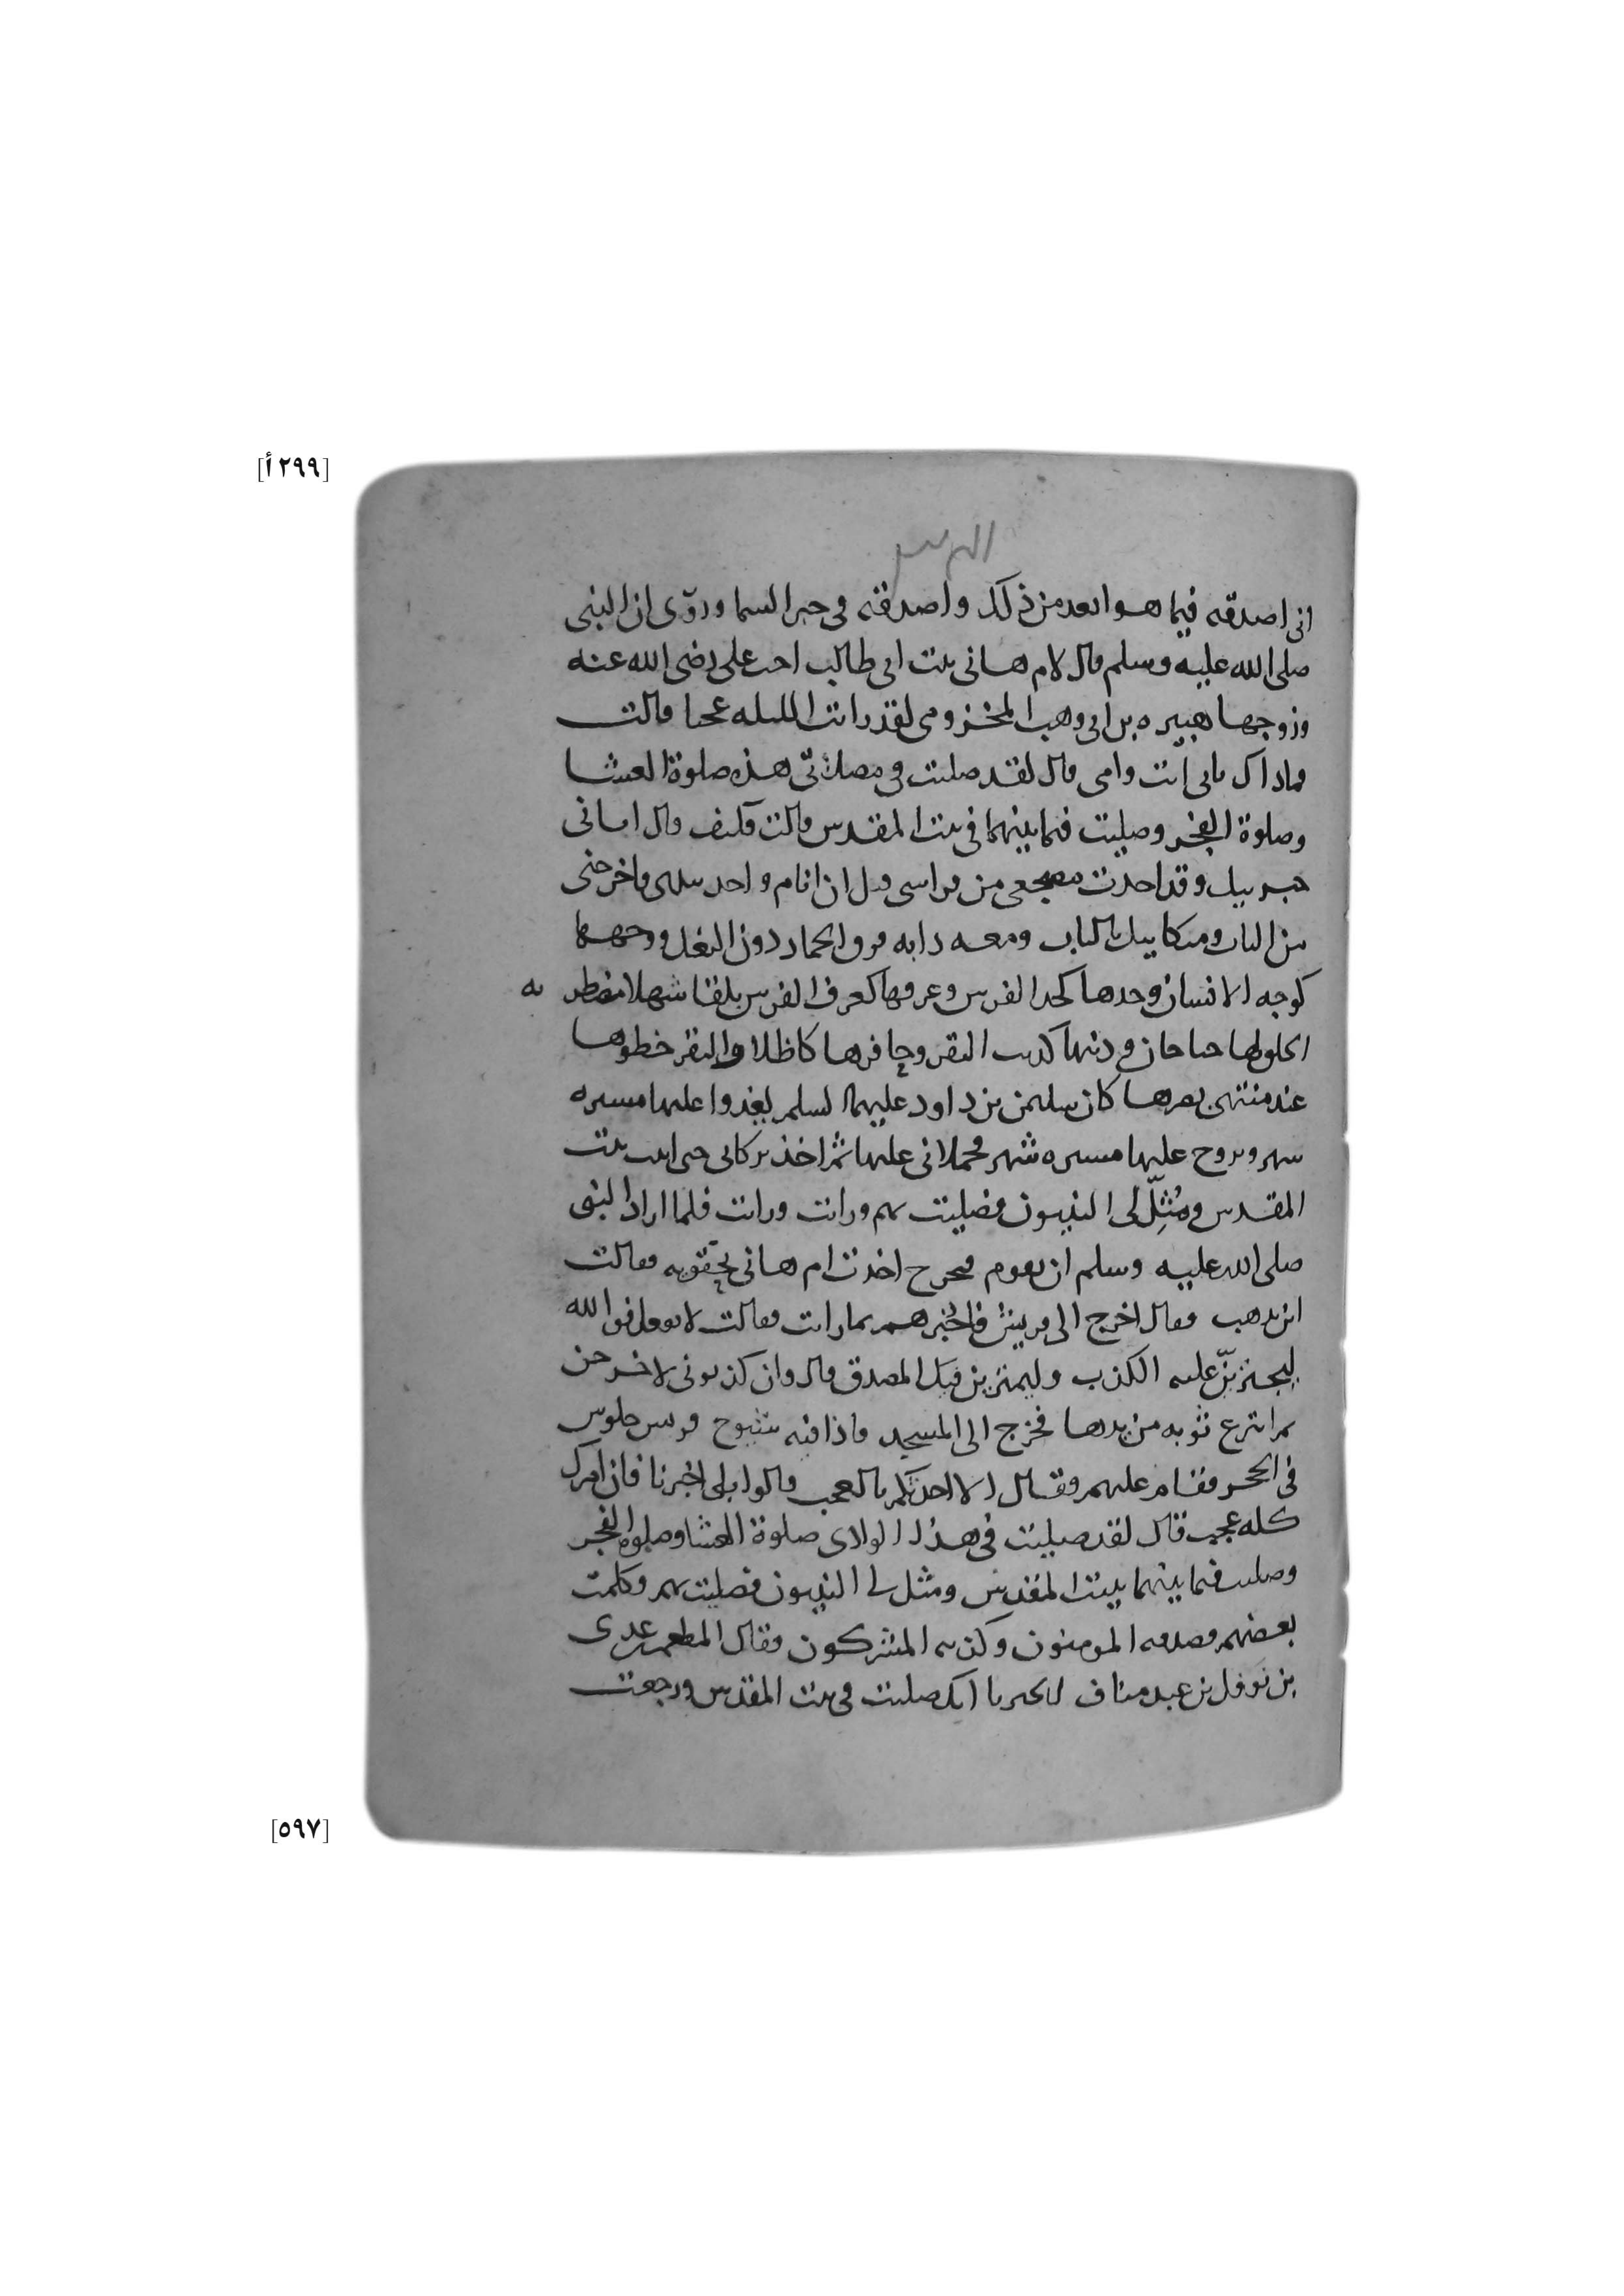 [٢٩٩ أ]
انى اصدقه فيما هو ابعد من ذلك واصدقته فى خبر السما وروى ان النبى
صلى الله عليه وسلم قال لام هانى بنت ابى طالب اخت على رضى الله عنه
وزوجها هبيره بن ابى وهب المخزومى لقد رايت الليله عجبا قالت
وماذاك بابى انت وامى قال لقد صليت فى مصلاتى هذه صلوة العشا
وصلوة الفجر وصليت فيما بينهما فى بيت المقدس قالت وكيف قال اتانى
جبرييل وقد اخذت مضجعى من فراشى قبل ان انام واخذ بيدى واخرجنى
من الباب وميكاييل بالباب ومعه دابه فوق الحمار دون البغل ووجهها
كوجه الانسان وخدها كخد الفرس وعرفها كعرف الفرس بلقا شهلا مضطربه
الخلق لها جناحان وذنبها كذنب البقر وحافرها كاظلاف البقر خطوها
عند منتهى بصرها كان سليمن بن داود عليهما السلم يغدوا عليها مسيره
شهر ويروح عليها مسيره شهر فحملانى عليها ثم اخذ يزكانى حتى اتيت بيت
المقدس ومُثِّل لى النبيون فصليت بهم ورايت ورايت فلما اراد النبى
صلى الله عليه وسلم ان يقوم فيخرج اخذت ام هانى بحقويه فقالت
اين يذهب فقال اخرج الى قريش فاخبرهم بما رايت فقالت لا تفعل فوالله
ليجترين عليك الكذب وليمترين فيك المصدق قال وان كذبونى لاخرجن
ثم انتزع ثوبه من يدها فخرج الى المسجد فاذا فيه شيوخ قريش جلوس
فى الحجر فقام عليهم وقال الا احدثكم بالعجب قالوا بلى اخبرنا فان امرك
كله عجب قال لقد صليت فى هذا الوادى صلوة العشا وصلوة الفجر
وصليت فيما بينهما ببيت المقدس ومثل لى النبيون فصليت بهم وكلمت
بعضهم فصدقه المومنون وكذبه المشركون وقال المطعم بن عدى
بن نوفل بن عبد مناف اتخبرنا انك صليت فى بيت المقدس ورجعت
[٥٩٧]